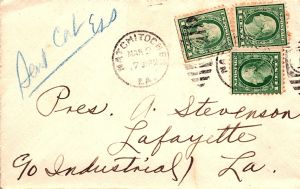 NATCHITOCHES
MAR 2
7 PM
LA.
Pres. A Stevenson
Lafayette
c/o Industrial) La.